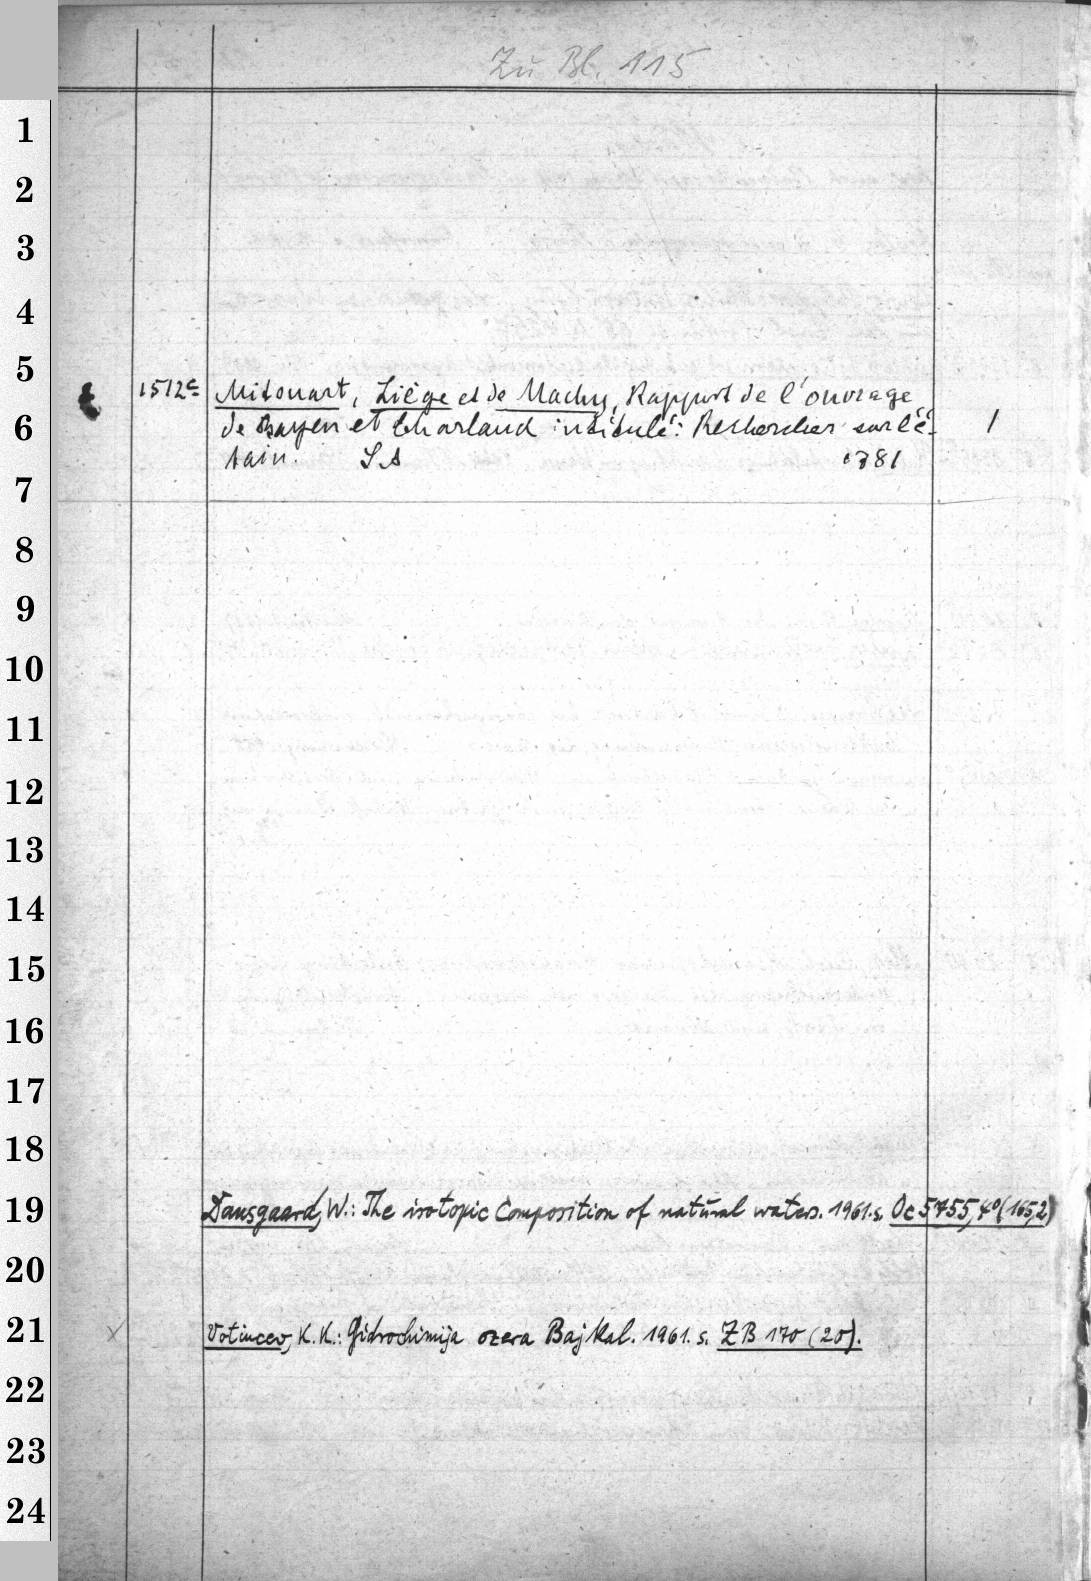 Zu Bl. 115
1
2
3
4
5
1512c Mitouart, Liège et de Machy, Rapport de l'ouvrage
6
de Bayen et Charlard intitulé: Recherches sur l'é- 1
tain. SA 1781
7
8
9
10
11
12
13
14
15
16
17
18
19
Dansgaard, W.: The isotopic Composition of natural waters. 1961. s. Oc 5755, 4°(165,2)
20
21
Votincev, K.K.: Gidrochimija ozera Bajkal. 1961. s. ZB 170 (20).
22
23
24